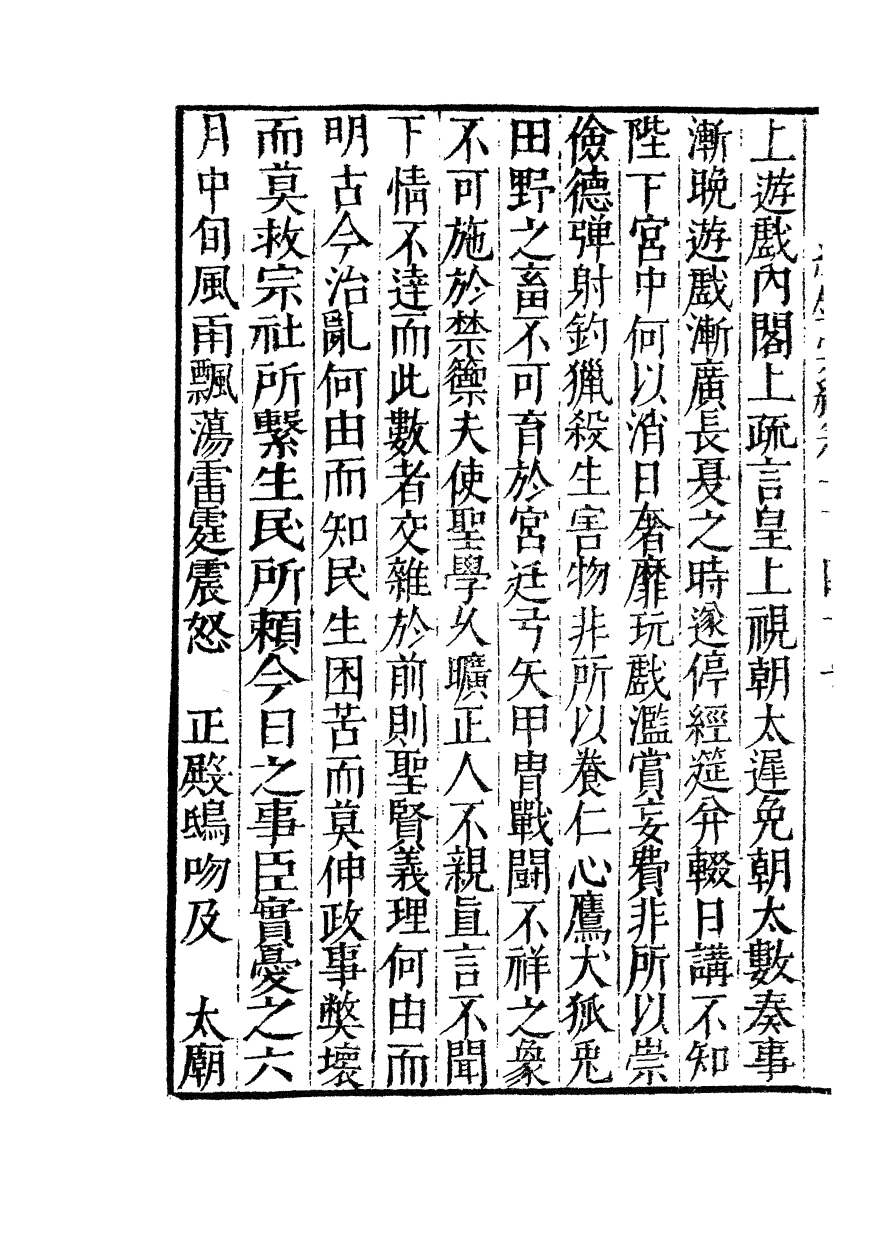 上遊戲內閣上疏言皇上視朝太遲免朝太數奏事
漸晚遊戲漸廣長夏之時遂停經筵并輟日講不知
陛下宮中何以消日奢靡玩戲濫賞妄費非所以崇
儉德彈射釣獵殺生害物非所以養仁心鷹犬狐兎
田野之畜不可育於宮廷弓矢甲冑戰鬬不祥之象
不可施於禁籞夫使聖學久曠正人不親直言不聞
下情不達而此數者交雜於前則聖賢義理何由而
明古今治亂何由而知民生困苦而莫伸政事弊壞
而莫救宗社所繫生民所賴今日之事臣實憂之六
月中旬風雨飄蕩雷霆震怒　正殿鴟吻及　太廟